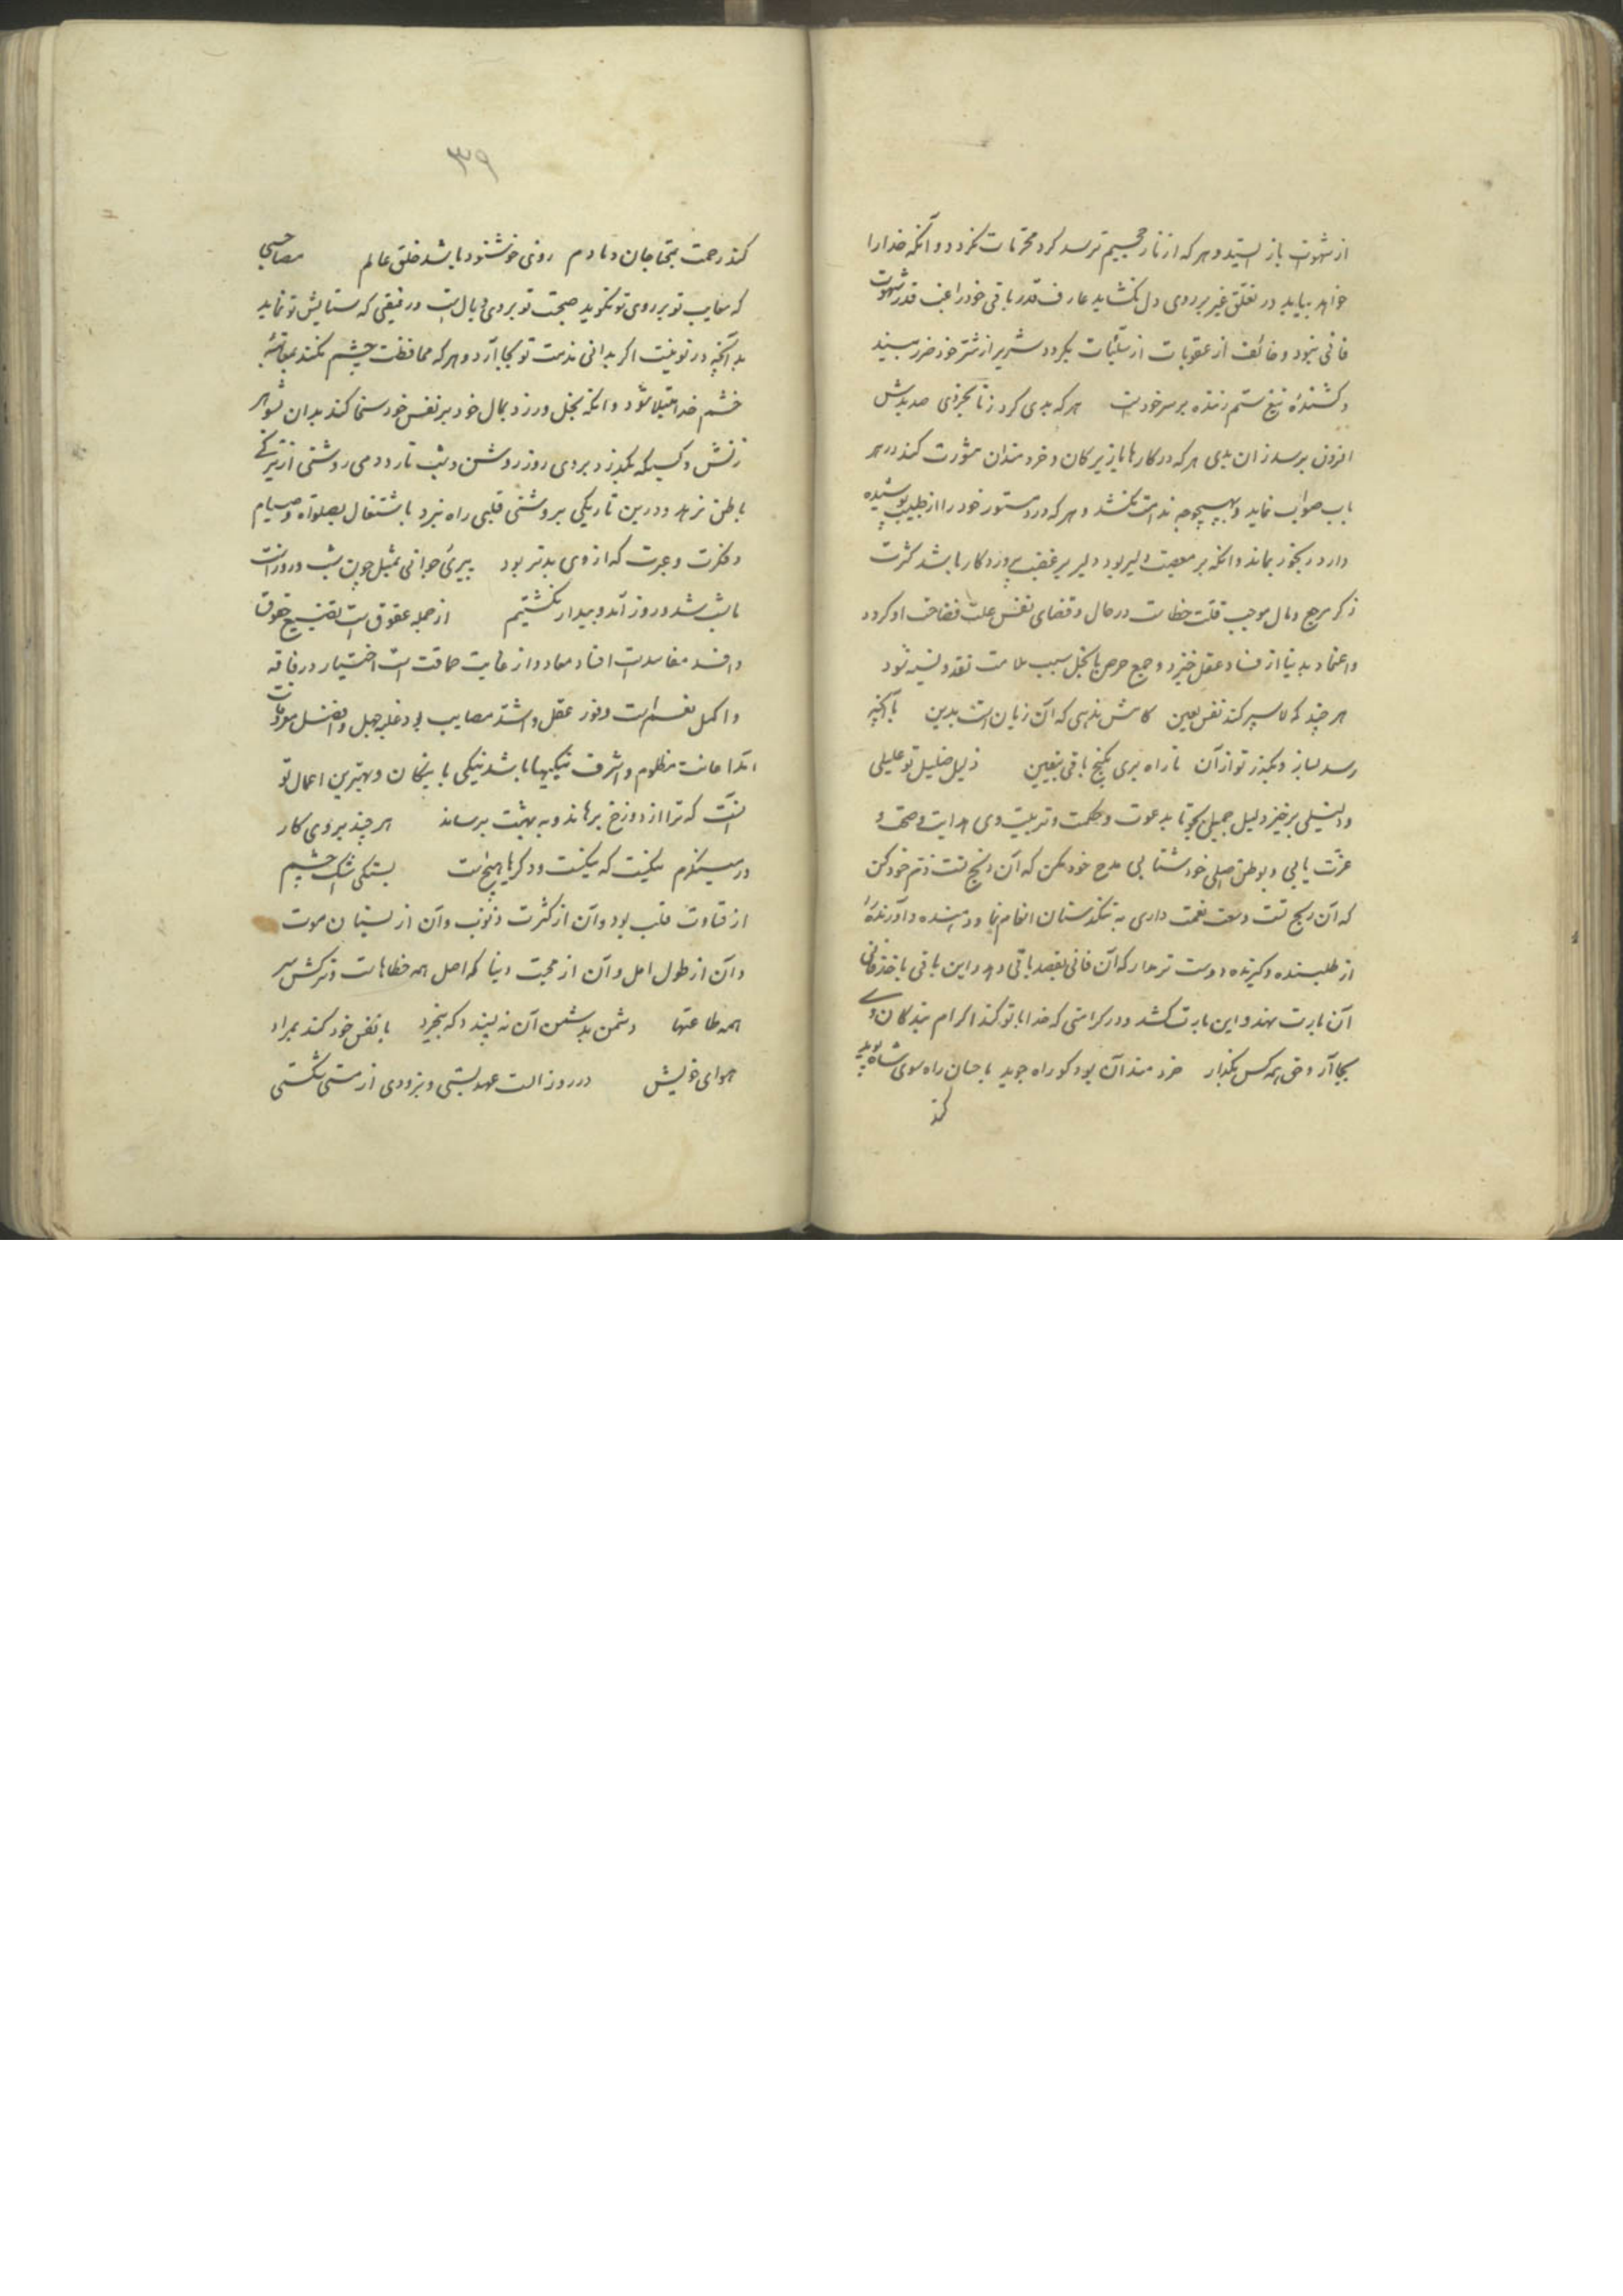 از شهوت باز ایستد و هر که از نار جحیم ترسد کرد محرمات نکردد و آنکه خدا را
خواهد بیابد در تعلق غیر بر روی دل نکشاید عارف قدر باقی خود راغب قدر شهوت
فانی نبود و خائف از عقوبات از سیئات بکردد شریر از شر خود ضرر بیند
و کشندهٔ تیغ ستم زننده بر سر خودست هر که بدی کرد زنا بخردی صد بدش
افزون برسد زان بدی هر که در کارها با زیرکان و خردمندان مشورت کند در هر
باب صواب نماید و بهیچوجه ندامت نکشد و هر که درد مستور خود را از طبیب پوشیده
دارد رنجور بماند و انکه بر معصیت دلیر بود دلیر بر غضب پروردکار باشد کثرت
ذکر مرجع و مال موجب قلت خطاست در حال و قضای نفس علت فضاحت او کردد
و اعتماد بدنیا از فساد عقل خیزد و جمع حرص با بخل سبب ملامت نقد و نسیه شود
هر چند که لا سپر کند نفس لعین کامش ندهی که آن زیان است بدین با آنچه
رسد بساز و بکذر تو از آن تا راه بری بکنج باقی بیقین ذلیل ضلیل تو علیلی
و بر خیز دلیل جمیل بجو تا بدعوت و حکمت و تربیت وی هدایت و صحت و
عزت یابی و بوطن اصلی خود شتابی مدح خود مکن که آن تست ذم خود کن
که آن ربح تست وسعت نعمت داری به تنکدستان انعام نما و دهنده و آورنده را
از طلبنده و کیرنده دوست تر مدار که آن فانی بقصد باقی دهد و این باقی باخذ فانی
آن بارت نهد و این بارت کشد و در کرامتی که خدا با تو کند اکرام بندکان وی
بجا آر و حق همه کس بکذار خردمند آن بود کو راه جوید با حسان راه سوی شاه پوید
کند
۳۹
کند رحمت بمحتاجان دمادم روی خوشنود باشد خلق عالم مصاحبی
که معایب تو بر روی تو نکوید صحبت تو بر وی وبال است و رفیقی که ستایش تو نماید
بدآنچه در تو نیست اکر بدانی مذمت تو بجا آرد و هر که محافظت چشم نکند بعقاب
خشم خدا مبتلا شود و انکه بخل ورزد بمال خود بر نفس خود سخا کند بدان شوهر
زنش و کسیکه بکذرد بر وی روز روشن و شب تار و دمی روشنی از تیرکی
باطن نرهد و درین تاریکی بروشنی قلبی راه نبرد باشتغال بصلواة و صیام
و فکرت و عبرت که از وی بدتر بود پیری جوانی بمثل چون شب و روزست
ما شب شد و روز آمد و بیدار نکشتیم از جمله عقوق است تضییع حقوق
و افسد مفاسدست افساد معاد و از غایت حماقت است اختیار در فاقه
و اکمل نعم است وفور عقل و اشد مصایب بود غلبه جهل و افضل مروءات
است اعانت مظلوم و اشرف نیکیها باشد نیکی با نیکان و بهترین اعمال تو
آنست که ترا از دوزخ برهاند و به بهشت برساند هر چند بروی کار
در مینکرم یکیست که یکیست و دکرها هیچست بستکی اشک چشم
از قساوت قلب بود و آن از کثرت ذنوب و آن از نسیان موت
و آن از طول امل و آن از محبت دنیا که اصل همه خطاهاست و ترکش سر
همه طاعتها دشمن بدشمن آن نه پسندد که بیخرد با نفس خود کند بمراد
هوای خویش در روز الست عهد بستی و بزودی از مستی شکستی